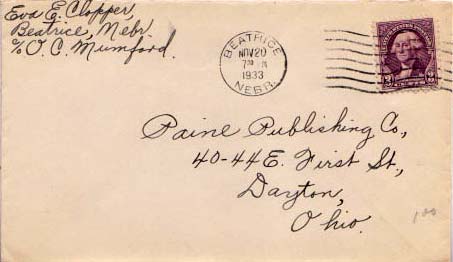 Eva E. Clopper,
Beatrice, Nebr.
℅ O. C. Mumford.
BEATRICE
NOV 20
1933
NEBR.
3 3
Paine Publishing Co.,
40-44 E. First St.,
Dayton,
Ohio.
1.00